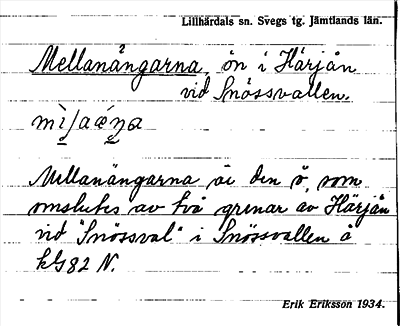 Lillhärdals sn. Svegs tg. Jämtlands län.
Mellanångarna, ön i Härjån
vid Snössvallen.
Mellanångarna är den ö, som
omslutes av två grenar av Härjån
vid "Snössval" i Snössvallen å
kG82 N.
Erik Eriksson 1934.